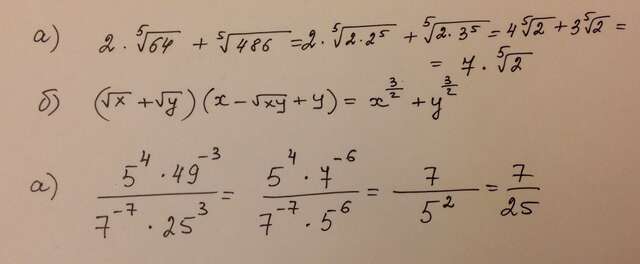 а) 2 · ⁵√64 + ⁵√486 = 2 · ⁵√(2 · 2⁵) + ⁵√(2 · 3⁵) = 4 ⁵√2 + 3 ⁵√2 =
= 7 · ⁵√2
б) (√x + √y) (x − √xy + y) = x^(3/2) + y^(3/2)
а) (5⁴ · 49⁻³)/(7⁻⁷ · 25³) = (5⁴ · 7⁻⁶)/(7⁻⁷ · 5⁶) = 7/5² = 7/25